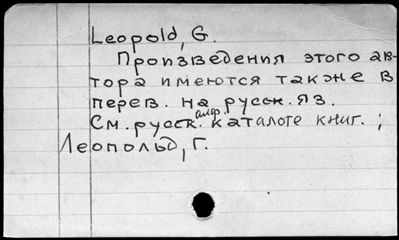 Leopold, G.
Произведения этого ав-
тора имеются также в
перев. на русск. яз.
См. русск. алф. каталоге книг. ;
Леопольд, Г.